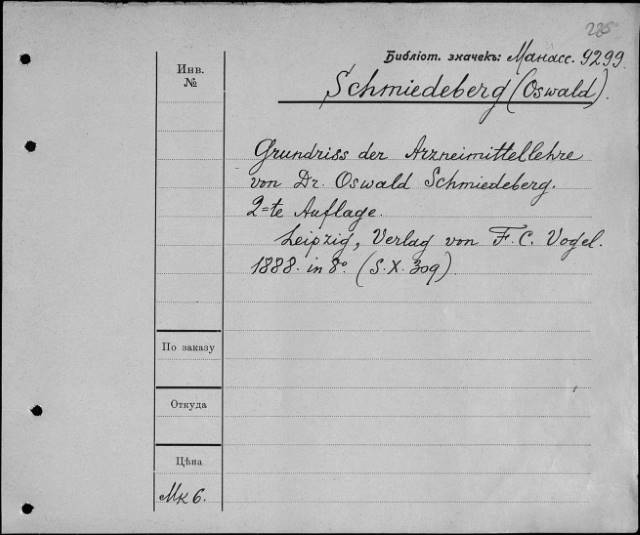 225
Библіот. значекъ: Манасс. 9299
Schmiedeberg (Oswald).
Инв.
№
Grundriss der Arzneimittellehre
von Dr. Oswald Schmiedeberg.
2=te Auflage.
Leipzig, Verlag von F. C. Vogel.
1888. in 8° (S. X. 309).
По заказу
Откуда
Цѣна
Мк 6.